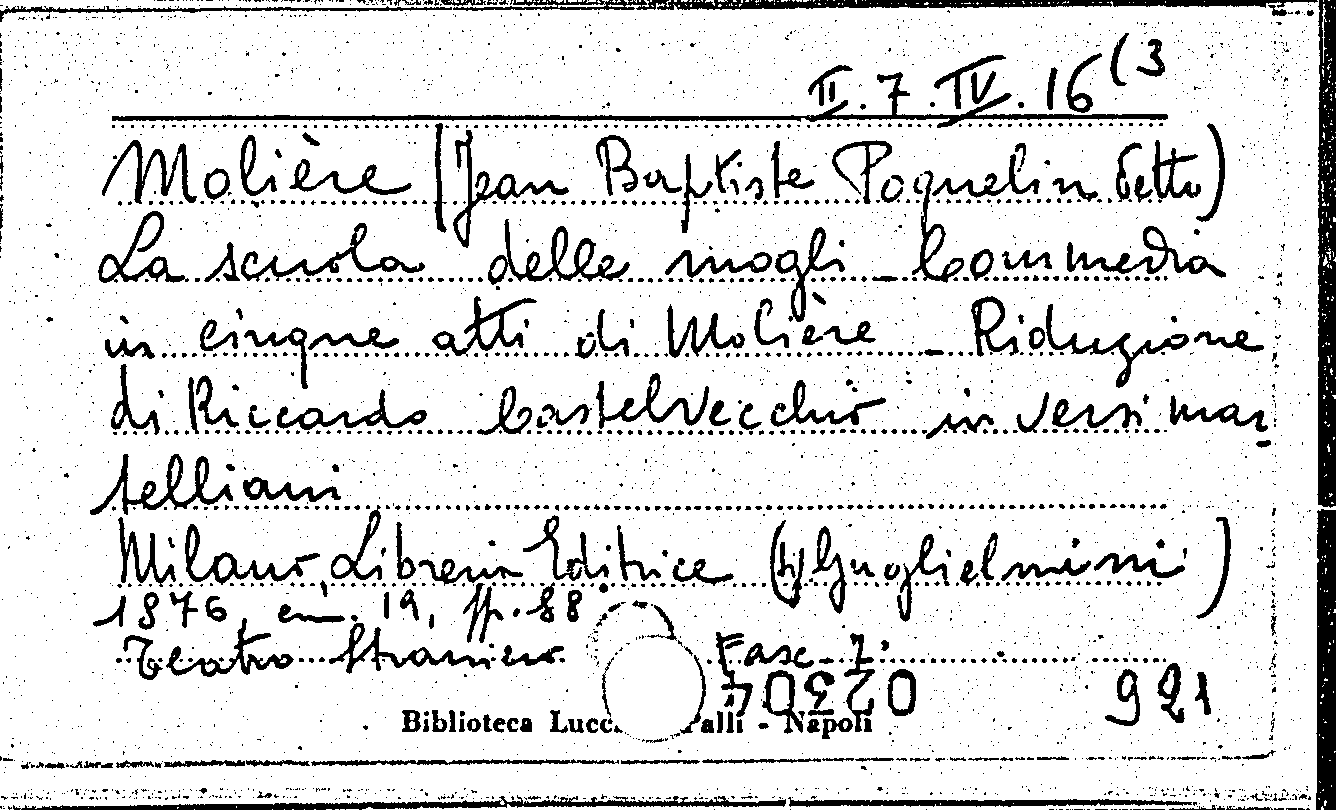 II.7.IV.16(3
Molière (Jean Baptiste Poquelin detto)
La scuola delle mogli - Commedia
in cinque atti di Molière - Riduzione
di Riccardo Castelvecchio in versi mar-
telliani
Milano, Libreria Editrice (Guglielmini)
1876, cm. 19, pp. 88
Teatro Straniero Fasc. 7.
02304
921
Biblioteca Lucc Palli - Napoli